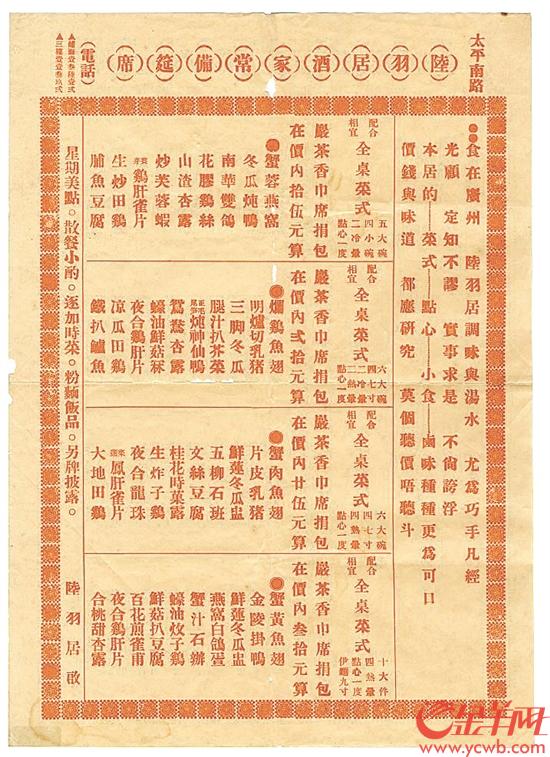 太平南路
陸羽居酒家常備筵席
電話
食在廣州 陸羽居調味與湯水 尤為巧手凡經
光顧 定知不謬 實事求是 不尚誇浮
本居的——菜式——點心——小食——鹵味種種更為可口
價錢與味道 都應研究 莫個聽價唔聽斗
配合相宜 全桌菜式 五大碗 四小碗 二冷葷 點心一度
嚴茶香巾席捐包
在價內拾伍元算
◉蟹蓉燕窩
冬瓜炖鴨
南華雙鴿
花膠鷄絲
山渣杏露
炒芙蓉蝦
鷄肝雀片
生炒田鷄
脯魚豆腐
配合相宜 全桌菜式 六大碗 四七寸 二冷葷 二熱葷 點心一度
嚴茶香巾席捐包
在價內弍拾元算
◉爛鷄魚翅
明爐切乳猪
三脚冬瓜
腿汁扒芥菜
炖神仙鴨
鴛鴦杏露
蠔油鮮菇菻
夜合鷄肝片
凉瓜田鷄
鐵扒鱸魚
配合相宜 全桌菜式 六大碗 四七寸 四熱葷 點心一度
嚴茶香巾席捐包
在價內廿伍元算
◉蟹肉魚翅
片皮乳猪
鮮蓮冬瓜盅
五柳石班
文絲豆腐
桂花時菓露
生炸子鷄
夜合龍珠
菜薳鳳肝雀片
大地田鷄
配合相宜 全桌菜式 十大件 四熱葷 點心一度 伊麵九寸
嚴茶香巾席捐包
在價內叁拾元算
◉蟹黃魚翅
金陵掛鴨
鮮蓮冬瓜盅
燕窩白鴿蛋
蟹汁石班
蠔油炆子鷄
鮮菇扒豆腐
百花煎雀甫
夜合鷄肝片
合桃甜杏露
星期美點。散餐小酌。逐加時菜。粉麵飯品。另牌披露。
陸羽居啟
金羊网
www.ycwb.com